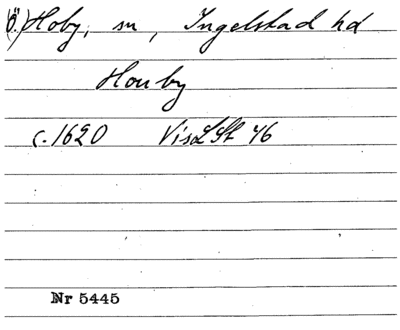 (Ö.) Hoby, sn, Ingelstad hd
Houby
c. 1620 VisLSt 46
Nr 5445